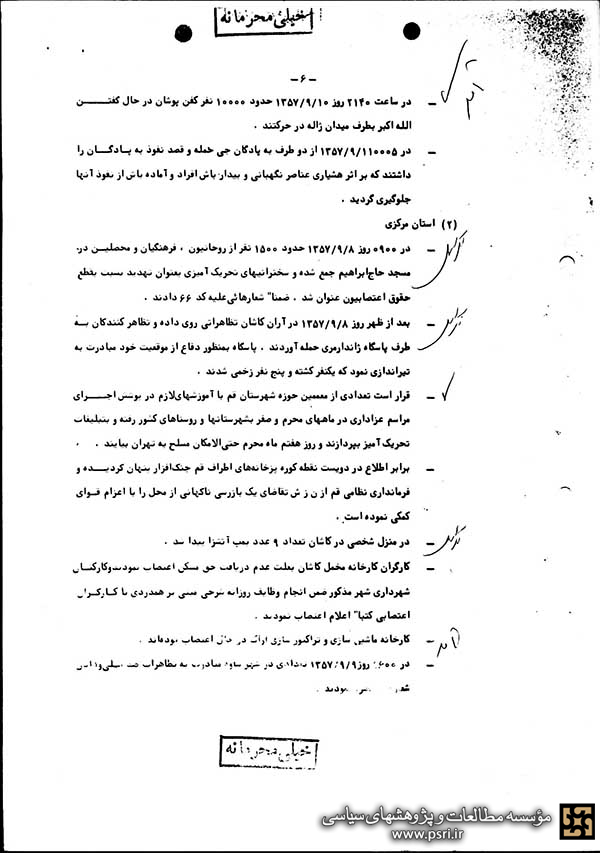 خیلی محرمانه
-۶-
ـ در ساعت ۲۱۴۰ روز ۱۳۵۷/۹/۱۰ حدود ۱۰۰۰۰ نفر کفن پوشان در حال گفتن
الله اکبر بطرف میدان ژاله در حرکتند .
ـ در ۱۳۵۷/۹/۱۱۰۰۰۵ از دو طرف به پادگان جی حمله و قصد نفوذ به پادگان را
داشتند که بر اثر هشیاری عناصر نگهبانی و بیدار باش افراد و آماده باش از نفوذ آنها
جلوگیری گردید .
(۲) استان مرکزی
ـ در ۰۹۰۰ روز ۱۳۵۷/۹/۸ حدود ۱۵۰۰ نفر از روحانیون ، فرهنگیان و محصلین در
مسجد حاج‌ابراهیم جمع شده و سخنرانیهای تحریک آمیزی بعنوان تهدید نسبت بقطع
حقوق اعتصابیون عنوان شد . ضمنا" شعارهائی علیه کد ۶۶ دادند .
ـ بعد از ظهر روز ۱۳۵۷/۹/۸ در آران کاشان تظاهراتی روی داده و تظاهر کنندگان به
طرف پاسگاه ژاندارمری حمله آوردند . پاسگاه بمنظور دفاع از موقعیت خود مبادرت به
تیراندازی نمود که یکنفر کشته و پنج نفر زخمی شدند .
ـ قرار است تعدادی از معممین حوزه شهرستان قم با آموزشهای لازم در پوشش اجرای
مراسم عزاداری در ماههای محرم و صفر بشهرستانها و روستاهای کشور رفته و بتبلیغات
تحریک آمیز بپردازند و روز هفتم ماه محرم حتی‌الامکان مسلح به تهران بیایند .
ـ برابر اطلاع در دویست نقطه کوره پزخانه‌های اطراف قم جنگ‌افزار پنهان گردیده و
فرمانداری نظامی قم از ن ز ش تقاضای یک بازرسی ناگهانی از محل را با اعزام قوای
کمکی نموده است .
ـ در منزل شخصی در کاشان تعداد ۹ عدد بمب آتشزا پیدا شد .
ـ کارگران کارخانه مخمل کاشان بعلت عدم دریافت حق مسکن اعتصاب نمودند و کارکنان
شهرداری شهر مذکور ضمن انجام وظایف روزانه شرحی مبنی بر همدردی با کارگران
اعتصابی کتبا" اعلام اعتصاب نمودند .
ـ کارخانه ماشین سازی و تراکتور سازی اراک در حال اعتصاب بوده‌اند .
ـ در روز ۱۳۵۷/۹/۹ تعدادی در شهر ساوه مبادرت به تظاهرات
نمودند .
خیلی محرمانه
مؤسسه مطالعات و پژوهشهای سیاسی
www.psri.ir